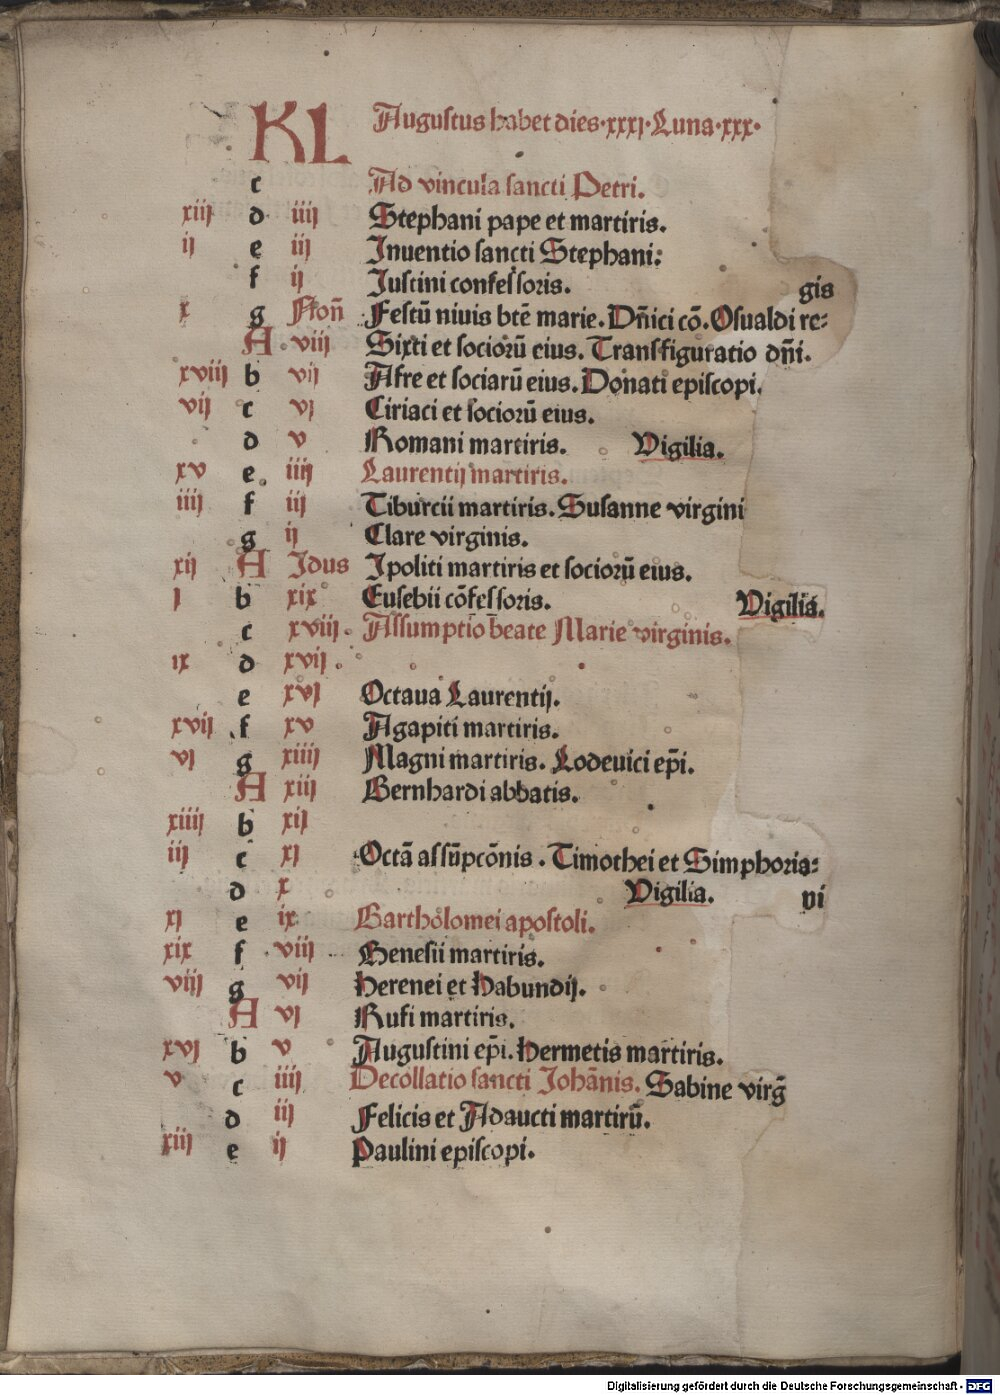 KL Augustus habet dies·xxxj·Luna·xxx·
c Ad vincula sancti Petri.
xiij d iiij Stephani pape et martiris.
ij e iij Inuentio sancti Stephani:
f ij Justini confessoris.
gis
x g Non̄ Festū niuis bt̄e marie. Dn̄ici cō. Osualdi re:
A viij Sixti et sociorū eius. Transfiguratio dn̄i.
xviij b vij Afre et sociarū eius. Donati episcopi.
vij c vj Ciriaci et sociorū eius.
d v Romani martiris. Vigilia.
xv e iiij Laurentij martiris.
iiij f iij Tiburcii martiris. Susanne virgini
g ij Clare virginis.
xij A Idus Ipoliti martiris et sociorū eius.
j b xix Eusebii cōfessoris. Vigilia.
c xviij Assumptio beate Marie virginis.
ix d xvij
e xvj Octaua Laurentij.
xvij f xv Agapiti martiris.
vj g xiiij Magni martiris. Lodeuici ep̄i.
A xiij Bernhardi abbatis.
xiiij b xij
iij c xj Octā assūpcōnis. Timothei et Simphoria:
d x Vigilia. ni
xj e ix Bartholomei apostoli.
xix f viij Genesii martiris.
viij g vij Herenei et Habundij.
A vj Rufi martiris.
xvj b v Augustini ep̄i. Hermetis martiris.
v c iiij Decollatio sancti Johānis. Sabine virḡ
d iij Felicis et Adaucti martirū.
xiij e ij Paulini episcopi.
Digitalisierung gefördert durch die Deutsche Forschungsgemeinschaft - DFG